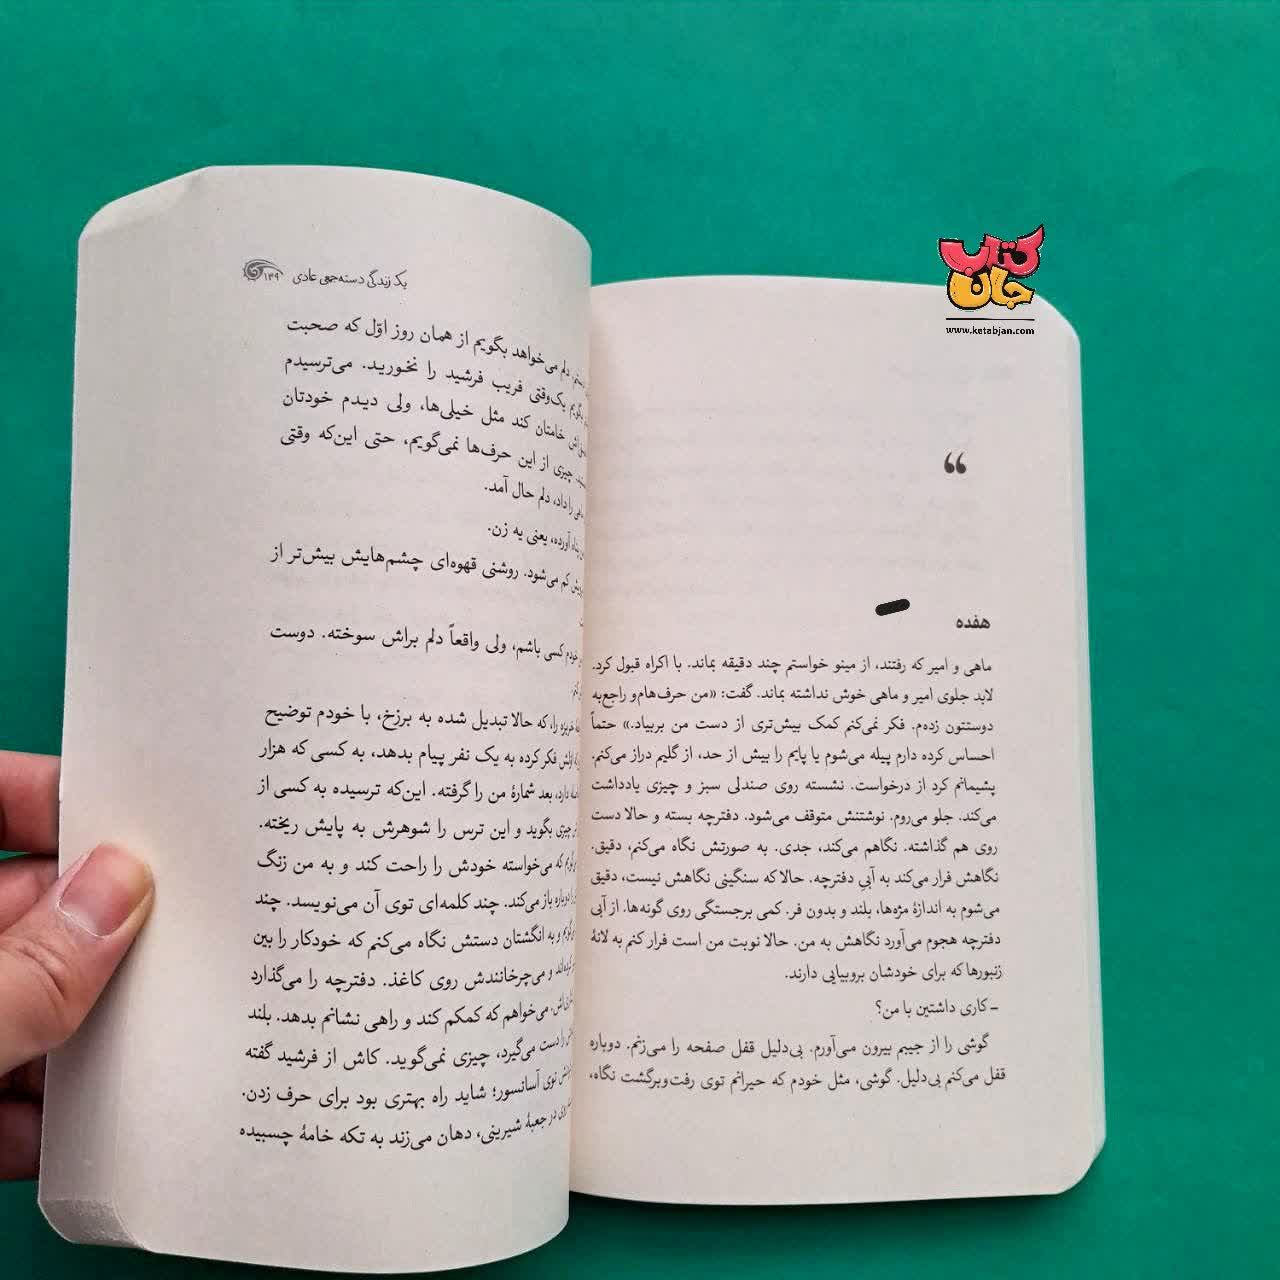 کتاب
جان
www.ketabjan.com
هفده
ماهی و امیر که رفتند، از مینو خواستم چند دقیقه بماند. با اکراه قبول کرد.
لابد جلوی امیر و ماهی خوش نداشته بماند. گفت: «من حرف‌هام‌و راجع‌به
دوستتون زده‌م. فکر نمی‌کنم کمک بیش‌تری از دست من بربیاد.» حتماً
احساس کرده دارم پیله می‌شوم یا پایم را بیش از حد، از گلیم دراز می‌کنم.
پشیمانم کرد از درخواست. نشسته روی صندلی سبز و چیزی یادداشت
می‌کند. جلو می‌روم. نوشتنش متوقف می‌شود. دفترچه بسته و حالا دست
روی هم گذاشته. نگاهم می‌کند، جدی. به صورتش نگاه می‌کنم، دقیق.
نگاهش فرار می‌کند به آبیِ دفترچه. حالا که سنگینی نگاهش نیست، دقیق
می‌شوم به اندازهٔ مژه‌ها، بلند و بدون فر. کمی برجستگی روی گونه‌ها. از آبی
دفترچه هجوم می‌آورد نگاهش به من. حالا نوبت من است فرار کنم به لانهٔ
زنبورها که برای خودشان بروبیایی دارند.
ـ کاری داشتین با من؟
گوشی را از جیبم بیرون می‌آورم. بی‌دلیل قفل صفحه را می‌زنم. دوباره
قفل می‌کنم بی‌دلیل. گوشی، مثل خودم که حیرانم توی رفت‌وبرگشت نگاه،
یک زندگی دسته‌جمعی عادی ۱۳۹
دلم می‌خواهد بگویم از همان روز اوّل که صحبت
بگویم یک‌وقتی فریب فرشید را نخورید. می‌ترسیدم
خامتان کند مثل خیلی‌ها، ولی دیدم خودتان
چیزی از این حرف‌ها نمی‌گویم، حتی این‌که وقتی
را داد، دلم حال آمد.
آورده، یعنی یه زن.
کم می‌شود. روشنی قهوه‌ای چشم‌هایش بیش‌تر از
خودم کسی باشم، ولی واقعاً دلم براش سوخته. دوست
خربزه را، که حالا تبدیل شده به برزخ، با خودم توضیح
فکر کرده به یک نفر پیام بدهد، به کسی که هزار
دارد، بعد شمارهٔ من را گرفته. این‌که ترسیده به کسی از
چیزی بگوید و این ترس را شوهرش به پایش ریخته.
که می‌خواسته خودش را راحت کند و به من زنگ
دوباره باز می‌کند. چند کلمه‌ای توی آن می‌نویسد. چند
و به انگشتان دستش نگاه می‌کنم که خودکار را بین
و می‌چرخانندش روی کاغذ. دفترچه را می‌گذارد
می‌خواهم که کمکم کند و راهی نشانم بدهد. بلند
را دست می‌گیرد، چیزی نمی‌گوید. کاش از فرشید گفته
توی آسانسور؛ شاید راه بهتری بود برای حرف زدن.
در جعبهٔ شیرینی، دهان می‌زند به تکه خامهٔ چسبیده